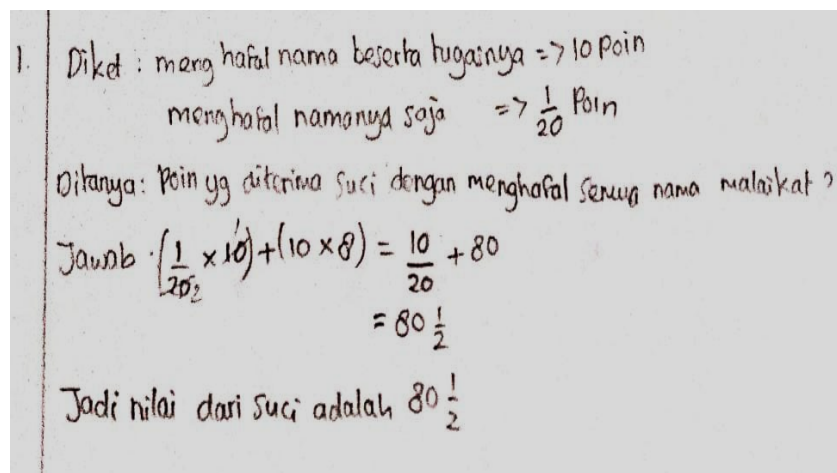 1. Diket : menghafal nama beserta tugasnya => 10 Poin
menghafal namanya saja => 1/20 Poin
Ditanya: Poin yg diterima Suci dengan menghafal semua nama malaikat ?
Jawab : (1/20 2 × 10 1) + (10 × 8) = 10/20 + 80
= 80 1/2
Jadi nilai dari Suci adalah 80 1/2